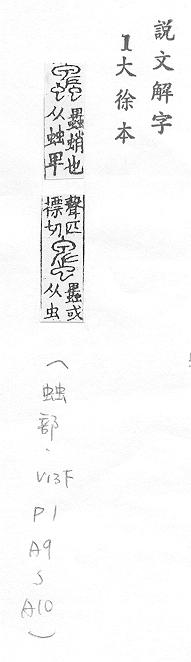 説文解字
1大徐本
𧖅蛸也
从䖵卑
聲匹
標切
𧖅或
从虫
(䖵部、V13下
P1
A9
S
A10)